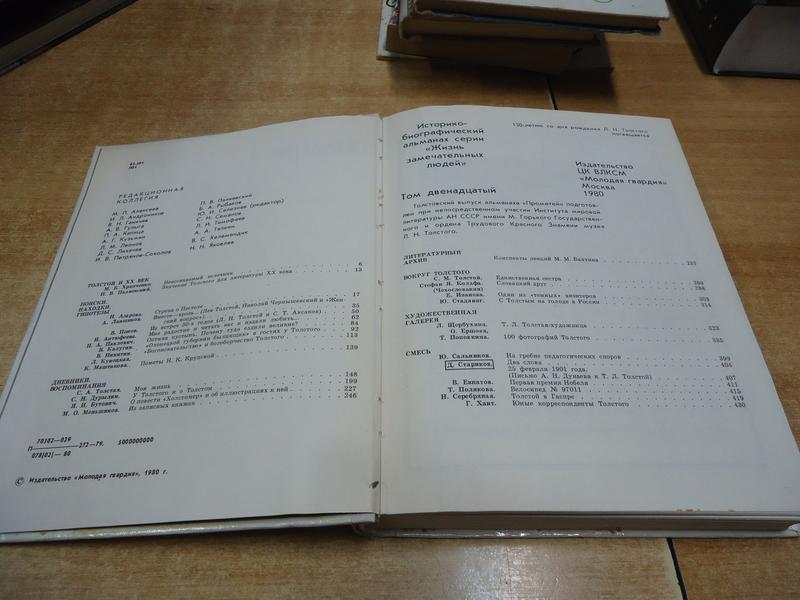 РЕДАКЦИОННАЯ
КОЛЛЕГИЯ
М. П. Алексеев
И. Л. Андроников
В. Н. Ганичев
А. В. Гулыга
П. А. Капица
А. Г. Кузьмин
Л. М. Леонов
Д. С. Лихачев
И. В. Петрянов-Соколов
П. В. Палиевский
Б. А. Рыбаков
Ю. И. Селезнев (редактор)
С. Н. Семанов
Л. И. Тимофеев
А. А. Тяпкин
В. С. Хелемендик
Н. Н. Яковлев
ТОЛСТОЙ И XX ВЕК
М. Б. Храпченко. Неиссякаемый источник 6
П. В. Палиевский. Значение Толстого для литературы XX века 13
ПОИСКИ.
НАХОДКИ.
ГИПОТЕЗЫ
Н. Азарова. Строка о Постели 17
А. Ланщиков. Вместе—врозь... (Лев Толстой, Николай Чернышевский и «Женский вопрос») 35
В. Кожинов. Из встреч 50-х годов (Л. Н. Толстой и С. Т. Аксаков) 50
Мне радостно и читать вас и издали любить... 62
Оптина пустынь. Почему туда ездили великие? 84
«Олонецкой губернии былинщик» в гостях у Толстого 92
В. Никитин. «Богоискательство» и богоборчество Толстого 113
Пометы Н. К. Крупской 139
ДНЕВНИКИ.
ВОСПОМИНАНИЯ
С. А. Толстая. Моя жизнь 148
С. Н. Дурылин. У Толстого и о Толстом 199
Я. И. Бутович. О повести «Холстомер» и об иллюстрациях к ней 227
М. О. Меньшиков. Из записных книжек 246
70302—029
П 272—79. 5000000000
078(02)—80
© Издательство «Молодая гвардия», 1980 г.
Историко-
биографический
альманах серии
«Жизнь
замечательных
людей»
150-летию со дня рождения Л. Н. Толстого
посвящается
Издательство
ЦК ВЛКСМ
«Молодая гвардия»
Москва
1980
Том двенадцатый
Толстовский выпуск альманаха «Прометей» подготов-
лен при непосредственном участии Института мировой
литературы АН СССР имени М. Горького Государствен-
ного и ордена Трудового Красного Знамени музея
Л. Н. Толстого.
ЛИТЕРАТУРНЫЙ
АРХИВ Конспекты лекций М. М. Бахтина 257
ВОКРУГ ТОЛСТОГО
С. М. Толстой. Единственная сестра 269
Стефан Я. Колафа. Словацкий друг
(Чехословакия)
Е. Иванова. Один из «темных» визитеров 303
Ю. Стадлинг. С Толстым на голоде в России 314
ХУДОЖЕСТВЕННАЯ
ГАЛЕРЕЯ
Л. Щербухина. Т. Л. Толстая-художница 323
О. Ершова,
Т. Поповкина. 100 фотографий Толстого 335
СМЕСЬ
Ю. Сальников. На гребне педагогических споров 399
Д. Стариков. Два слова 404
25 февраля 1901 года.
(Письмо А. И. Дунаева к Т. Л. Толстой) 407
В. Евпатов. Первая премия Нобеля 411
Т. Полякова. Велосипед № 97011 415
Н. Серебряная. Толстой в Гаспре 419
Г. Хаит. Юные корреспонденты Толстого 430